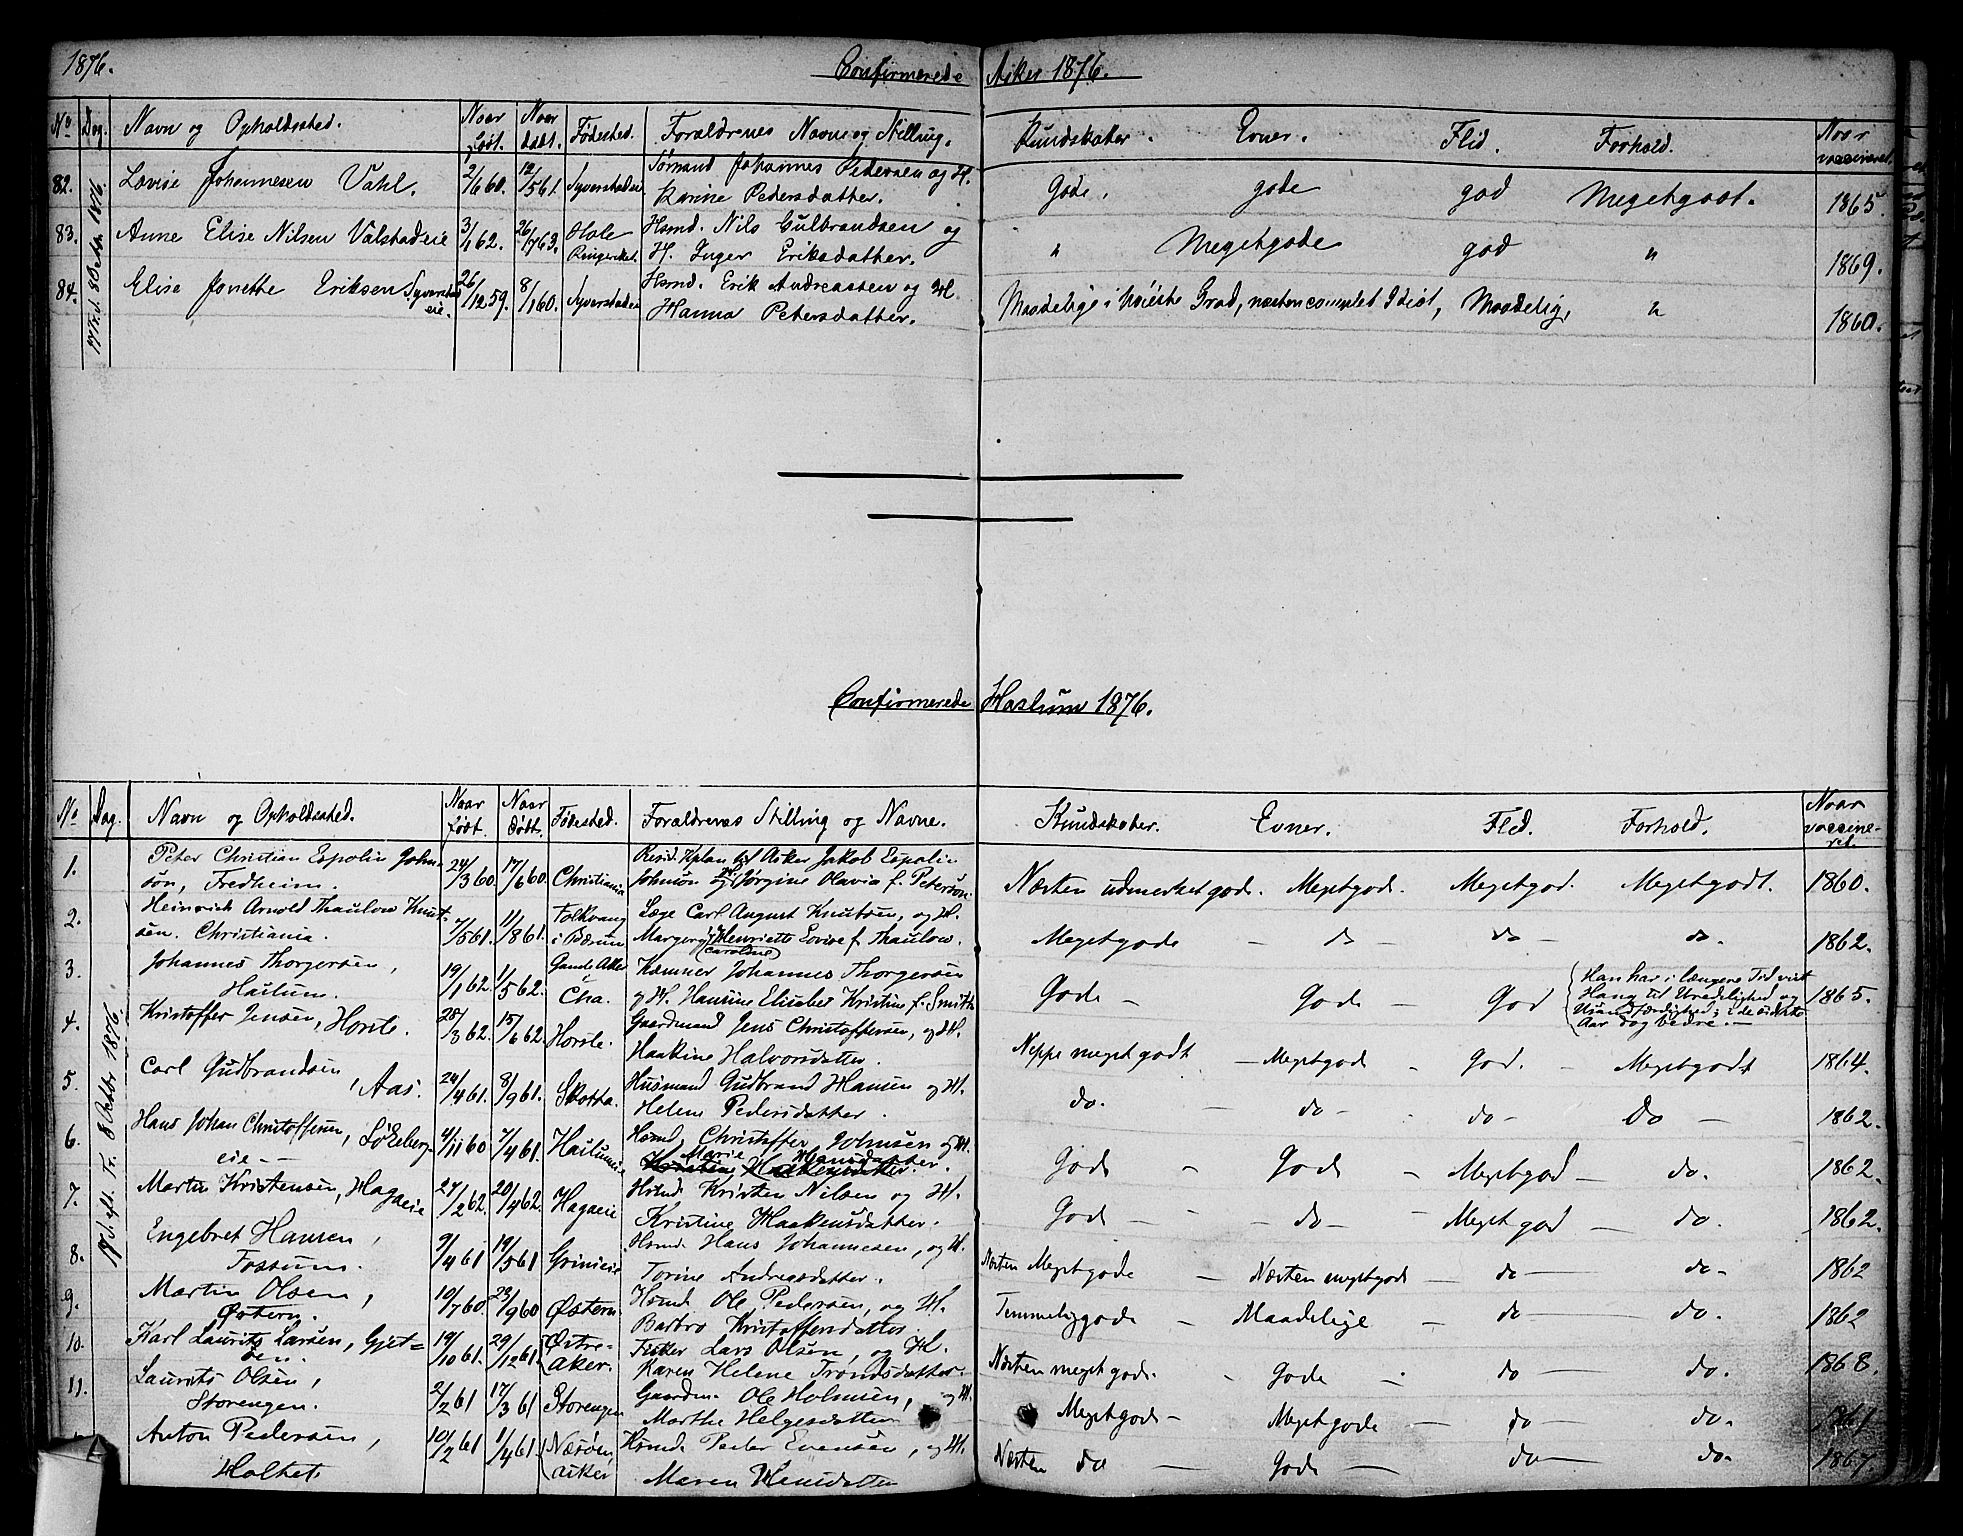 1876.
Confirmerede Asker 1876.
No Dag. Navn og Opholdssted. Naar født. Naar døbt. Fødested. Forældrenes Navne og Stilling. Kundskaber. Evner. Flid. Forhold. Naar vaccineret.
17 Trd. 8 Octbr. 1876.
82. Lovise Johannesen Vahl. 2/6 60. 12/5 61. Syverstadeie Sørmand Johannes Pedersen og H. Gode. gode god Megetgodt. 1865.
Karine Pedersdatter.
83. Anne Elise Nilsen Valstadeie 3/1 62. 26/7 63. Hole Hsmd. Nils Gulbrandsen og " Megetgode god " 1869.
Ringeriket. H. Inger Eriksdatter.
84. Elise Janette Eriksen Syverstad 26/12 59. 8/1 60. Syverstadeie Hsmd. Erik Andreassen og H. Maadelige i høieste Grad, næsten complet Idiot, Maadelig, " 1860.
eie. Hanna Petersdatter.
Confirmerede Haslum 1876.
No Dag. Navn og Opholdssted. Naar født. Naar døbt. Fødested. Forældrenes Stilling og Navne. Kundskaber. Evner. Flid. Forhold. Naar vaccine-
ret.
17 S. eft. Tr. 8 Octbr 1876.
1. Peter Christian Espolin John- 24/3 60. 17/6 60. Christiania Resid. Kplan til Asker Jakob Espolin Næsten udmerket god. Megetgod. Megetgod. Megetgodt. 1860.
son, Fredheim. Johnson og H. Jørgine Olavia f. Peterson
2. Heinrich Arnold Thaulow Knut- 7/5 61. 11/8 61. Folkvang Læge Carl August Knutsen, og H. Megetgode – do – do – do. 1862.
sen. Christiania. i Bærum Margery Henriette Lovise f. Thaulow.
(Caroline)
3. Johannes Thorgersen, 19/1 62. 1/5 62. Gamle Aker Kæmner Johannes Thorgersen Gode – Gode – God Han har i længere Tid vist 1865.
Haslum. Cha. og H. Hansine Elisabet Kristine f. Smith Hang til Uredelighed og
Usandfærdighed; i de sidste
Aar dog bedre. –
4. Kristoffer Jensen, Horsle. 28/3 62. 15/6 62. Horsle. Gaardmand Jens Christoffersen, og H. Neppe meget godt – Megetgod – God. – Megetgodt 1864.
Haakine Halvorsdatter.
5. Carl Gudbrandsen, Aas. 24/4 61. 8/9 61. Skotta. Husmand Gudbrand Hansen og H. do. – do – do – Do – 1862.
Helene Pedersdatter.
6. Hans Johan Christoffersen, Løkeberg- 4/11 60 7/4 61. Haslumeie Hsmd. Christoffer Johnsen og H. Gode – Gode – Megetgod – do. 1862.
eie – Marie Hansdatter.
Kristine Haakensdatter.
7. Martin Kristensen, Hagaeie 27/2 62. 20/4 62. Hagaeie Hsmd. Kristen Nilsen og H. Gode – – do – Megetgod – do. 1862.
Kristine Haakensdatter.
8. Engebret Hansen, 9/4 61 19/5 61 Grinieie Hsmd. Hans Johannesen, og H. Næsten Megetgode – Næsten megetgode – do – do – 1862
Fossum. Torine Andreasdatter.
9. Martin Olsen, 10/7 60. 23/9 60 Østern Hsmd. Ole Pedersen, og H. Temmelig gode – Maadelige – do – do. 1862
Østern. Barbro Kristoffersdatter.
10. Karl Laurits Larsen, Gjet= 19/10 61. 29/12 61 Østre- Fisker Lars Olsen, og H. Næsten meget gode. – Gode – do – do. 1868.
øen. Aker. Karen Helene Trondsdatter.
11. Laurits Olsen, 2/2 61 17/3 61 Storengen Gaardm. Ole Holmsen, og H. Megetgode – Megetgode – do – do. 1861
Storengen. Marthe Helgesdatter
Anton Pedersen, 10/2 61 1/4 61. Næsøen, Hsmd. Peder Evensen, og H. Næsten do – Gode – do – do. 1867.
Holtet. Asker Maren Hansdatter